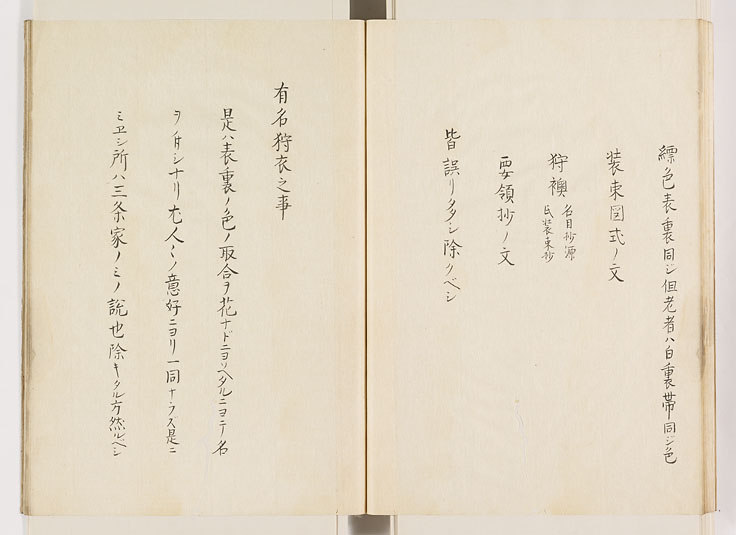 縹色表裏同ジ但老者ハ白裏帯同ジ色
装束図式ノ文
狩襖 名目抄源
氏装束抄
要領抄ノ文
皆誤リ多シ除クベシ
有名狩衣之事
是ハ表裏ノ色ノ取合ヲ花ナドニヨソヘタルニヨテ名
ヲ付シナリ尤人々ノ意好ニヨリ一同ナラズ是ニ
ミヱシ所ハ三条家ノミノ説也除キタル方然ルベシ